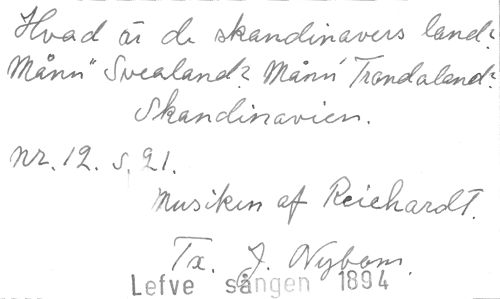 Hvad är de skandinavers land?
Månn' Svealand? Månn' Trondaland?
Skandinavien.
Nr. 12. s. 21.
Musiken af Reichardt.
Tx. J. Nybom.
Lefve sången 1894